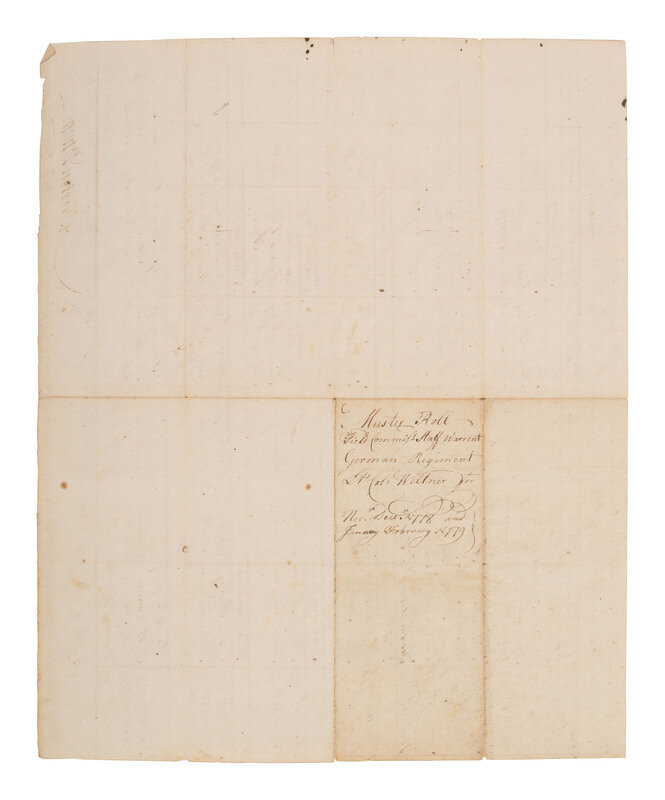 Muster Roll
Field Commis.d Staff Warrent
German Regiment
Lt. Col. Weltner for
Nov.r Dec.r 1778 and
January February 1779